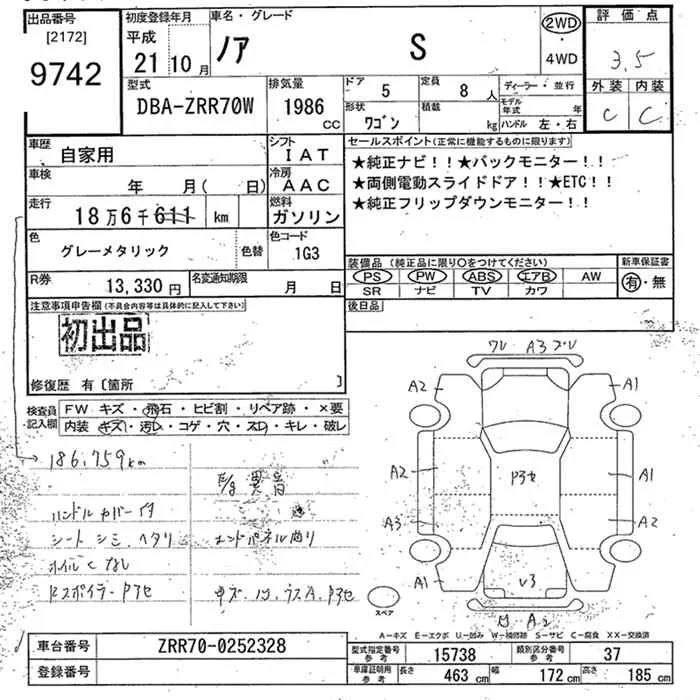 出品番号
[2172]
9742
初度登録年月
平成
21 10 月
車名・グレード
ノア S
2WD
・
4WD
評価点
3.5
外装 内装
C C
型式
DBA-ZRR70W
排気量
1986 CC
ドア 5
定員 8 人
形状 ワゴン
積載 kg
ディーラー・並行
モデル年式 年
ハンドル 左・右
車歴 自家用
シフト IAT
車検 年 月( 日)
冷房 AAC
走行 18万6千611 km
燃料 ガソリン
色 グレーメタリック 色替
色コード 1G3
R券 13,330円
名変通知期限 月 日
セールスポイント(正常に機能するものに限ります)
★純正ナビ!!★バックモニター!!
★両側電動スライドドア!!★ETC!!
★純正フリップダウンモニター!!
装備品(純正品に限り○をつけてください)
PS PW ABS エアB AW
SR ナビ TV カワ
新車保証書
有・無
後日品
注意事項申告欄(不具合内容等は具体的に記入して下さい)
初出品
修復歴 有〔箇所 〕
検査員記入欄
FW キズ・飛石・ヒビ割・リペア跡・×要
内装 キズ・汚レ・コゲ・穴・スレ・キレ・破レ
186,759km
E/g異音
ハンドルカバー付
シート シミ、ヘタリ
エンドパネル曲り
ホイルCなし
Rスポイラー P3セ
ワレ A3 ズレ
A2 A1
A2 P3セ A1
A3 A2
A1 V3
A2
スペア
A－キズ E－エクボ U－凹み W－補修跡 S－サビ C－腐食 XX－交換済
車台番号 ZRR70-0252328
登録番号
型式指定番号 参考 15738
類別区分番号 参考 37
車庫証明用 参考 長さ 463 cm 幅 172 cm 高さ 185 cm